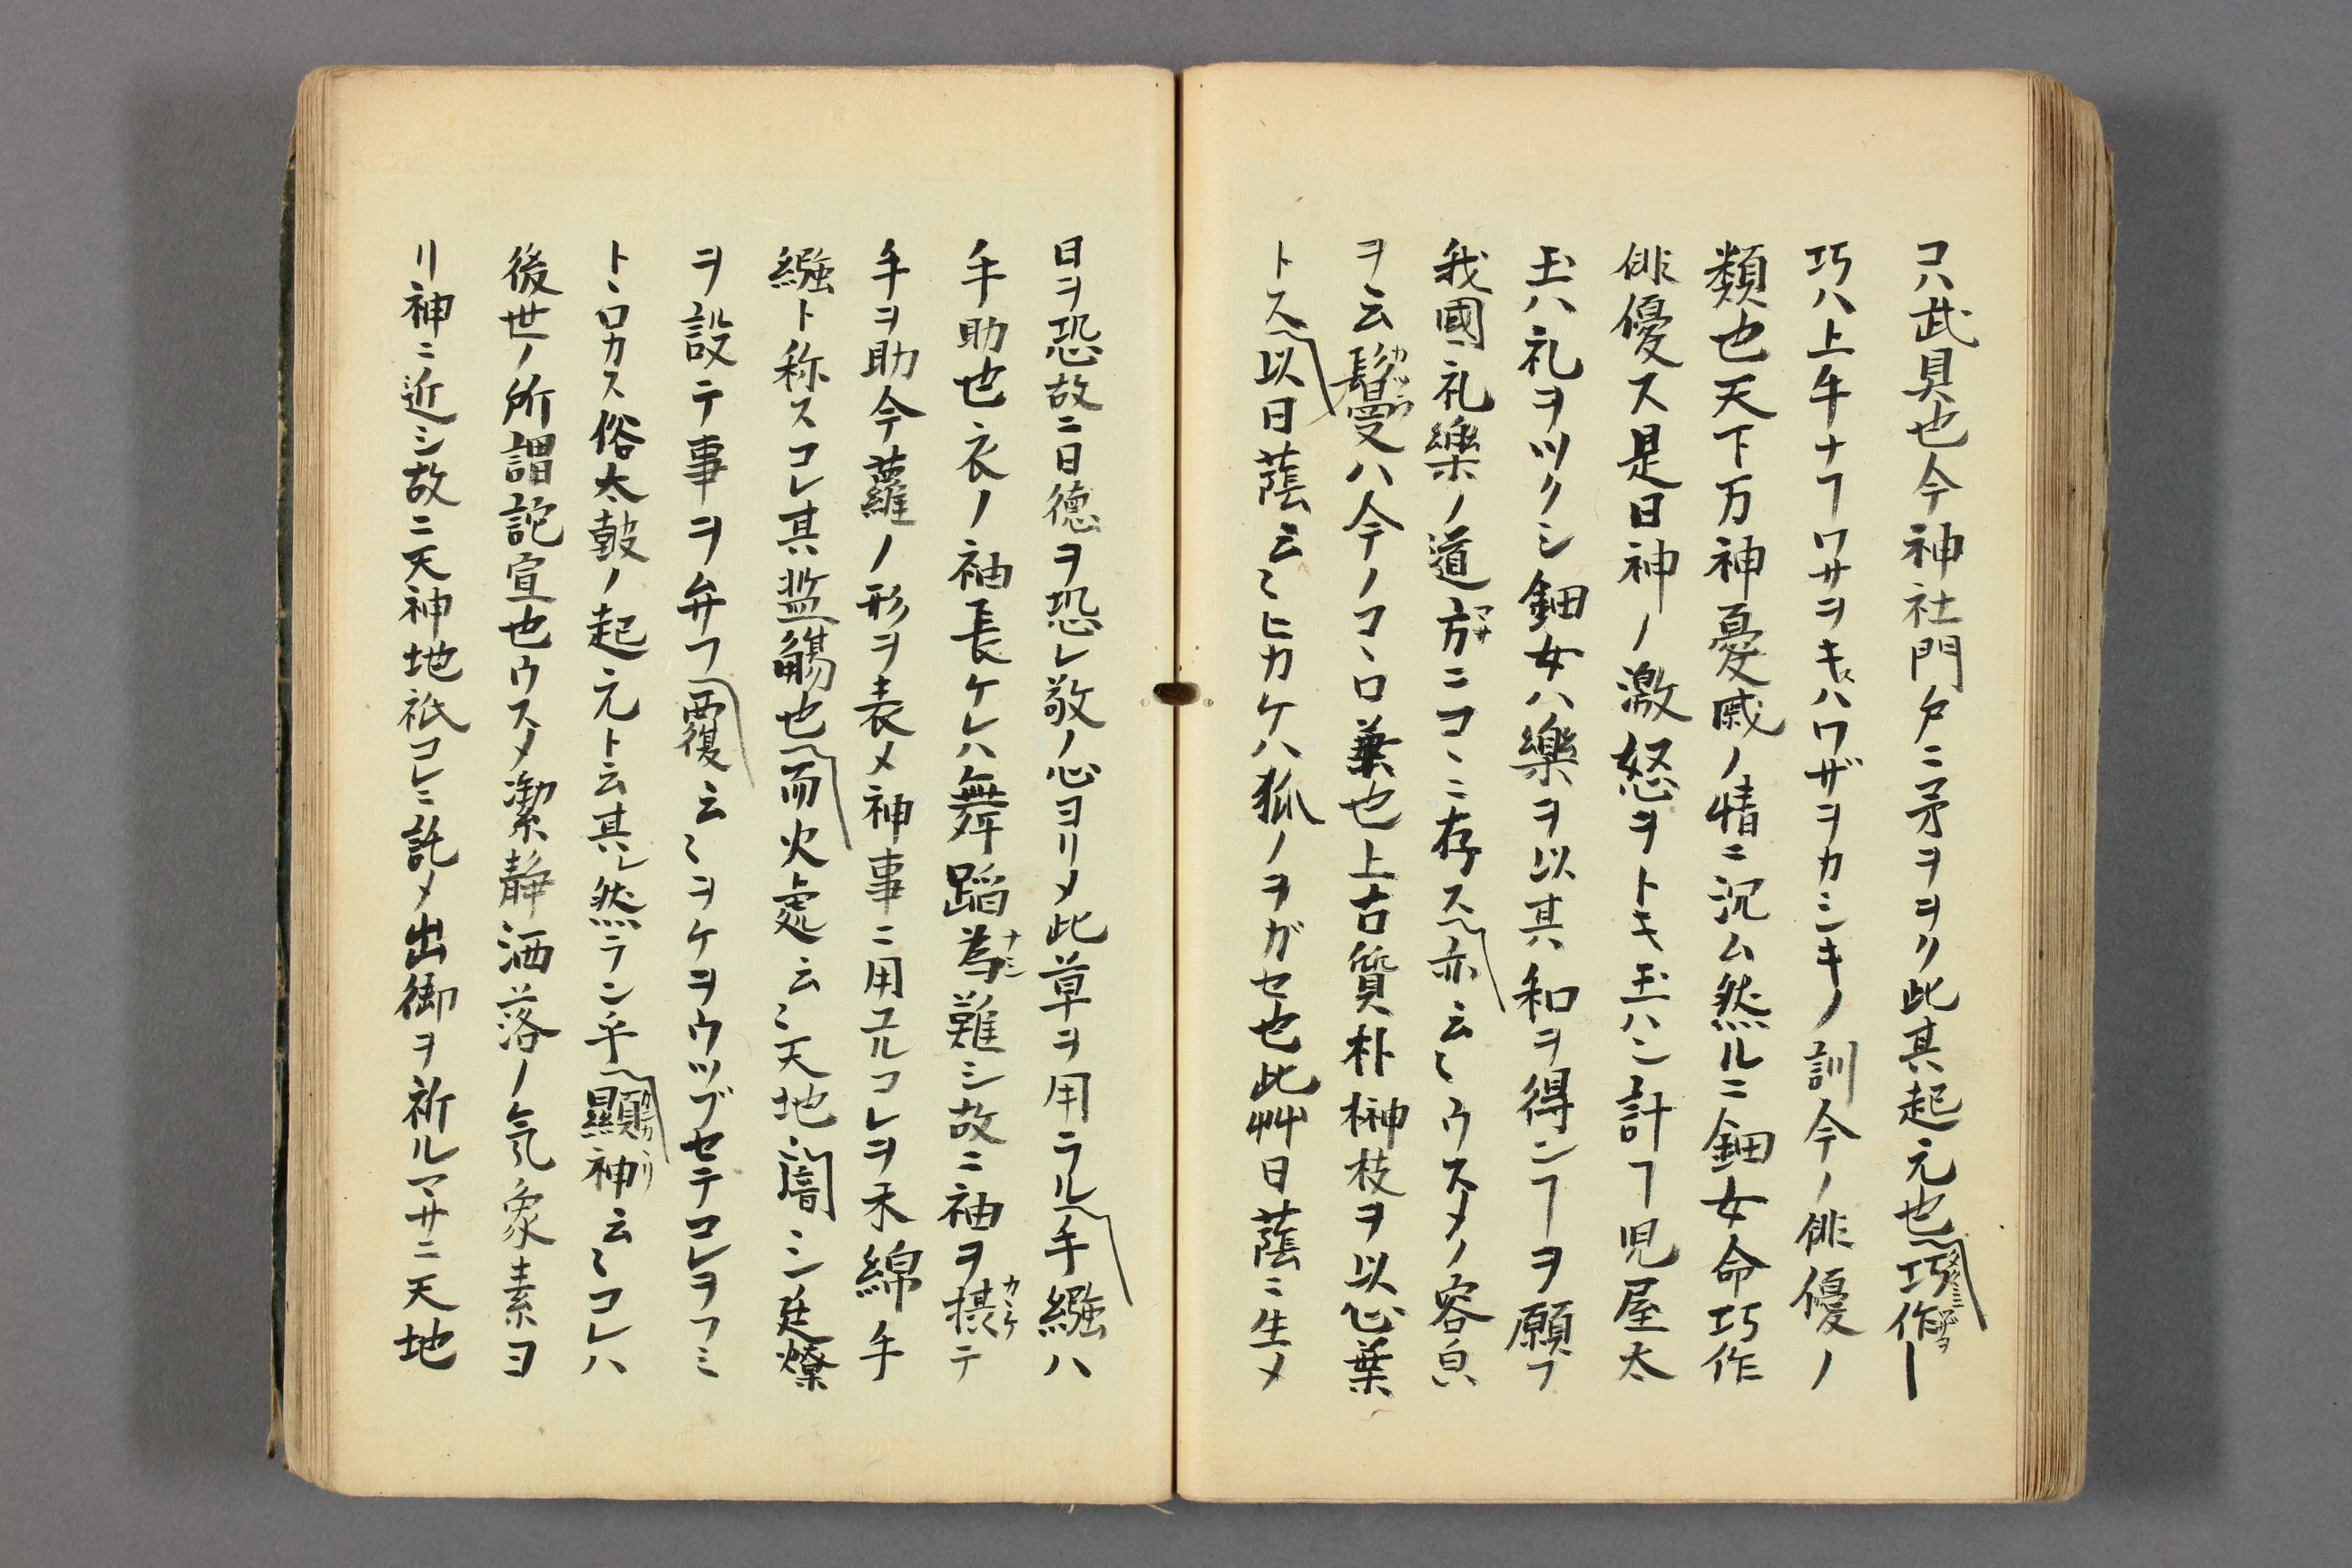 コハ武具也今神社門戸ニ矛ヲヲク此其起元也巧作ー
巧ハ上手ナフワサヲキハワザヲカシキノ訓今ノ俳優ノ
類也天下万神憂戚ノ情ニ沉ム然ルニ鈿女命巧作
俳優ス是日神ノ激怒ヲトキ玉ハン計フ児屋太
玉ハ礼ヲツクシ鈿女ハ樂ヲ以其和ヲ得ンフヲ願フ
我國礼樂ノ道方ニコヽニ存ス亦云〻ウスメノ容皃
ヲ云鬘ハ今ノコヽロ葉也上古質朴榊枝ヲ以心葉
トス以日蔭云〻ヒカケハ狐ノヲガセ也此艸日蔭ニ生メ
日ヲ恐故ニ日德ヲ恐レ敬ノ心ヨリメ此草ヲ用ラル手繦ハ
手助也衣ノ袖長ケレハ舞蹈為ナシ難シ故ニ袖ヲテ
手ヲ助今蘿ノ形ヲ表メ神事ニ用ユルコレヲ木綿手
繦ト称スコレ其監觴也而火處云〻天地闇シ廷燎
ヲ設テ事ヲ弁フ覆云〻ヲケヲウツブセテコレヲフミ
トヽロカス俗太鼓ノ起元ト云其レ然ラン乎顯神云〻コレハ
後世ノ所謂託宣也ウスメ潔静洒落ノ気象素ヨ
リ神ニ近シ故ニ天神地祇コレニ託メ出御ヲ祈ルマサニ天地